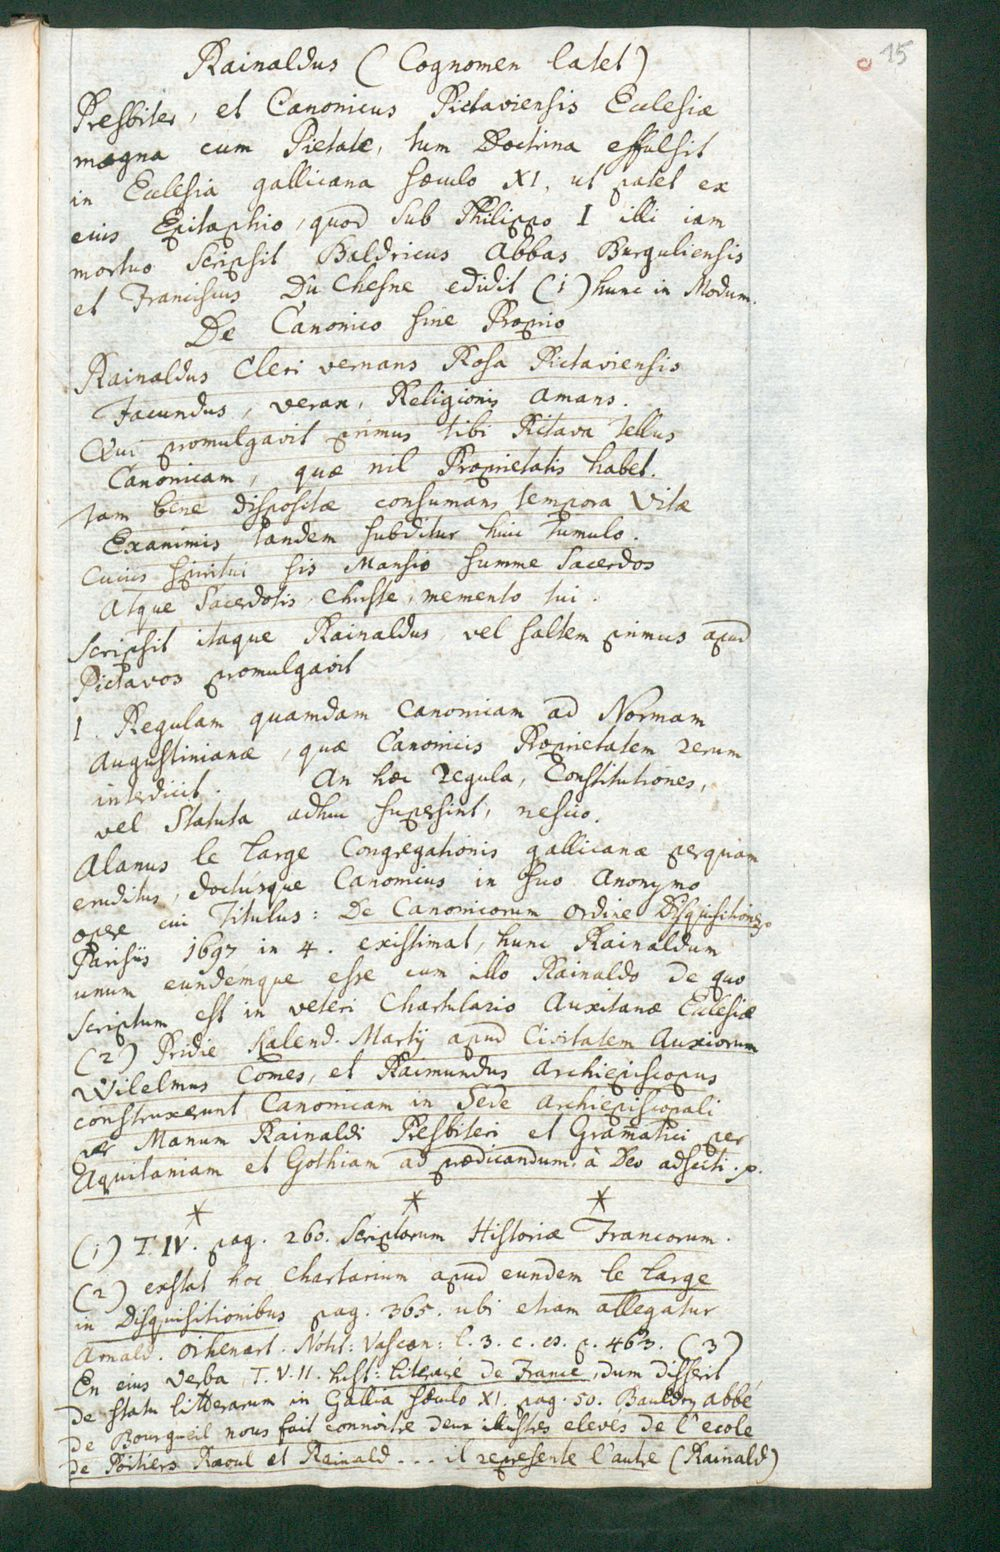 15
Rainaldus (Cognomen latet)
Presbiter, et Canonicus Pictaviensis Ecclesiæ
magna cum Pietate, tum Doctrina effulsit
in Ecclesia gallicana sæculo XI, ut patet ex
eius Epitaphio, quod sub Philippo I illi iam
mortuo scripsit Baldricus Abbas Burguliensis
et Franciscus Du Chesne edidit (1) hunc in Modum.
De Canonico sine Proprio
Rainaldus Cleri vernans Rosa Pictaviensis
Facundus, verax, Religionis amans.
Qui promulgavit primus tibi Pictava Tellus
Canonicam, quæ nil Proprietatis habet.
tam bene dispositæ consumans tempora Vitæ
Exanimis tandem subditur huic tumulo.
Cuius spiritui sis Mansio summe Sacerdos
Atque Sacerdotis, Christe, memento tui.
Scripsit itaque Rainaldus, vel saltem primus apud
Pictavos promulgavit
1. Regulam quamdam canonicam ad Normam
Augustinianæ, quæ Canonicis Proprietatem rerum
interdicit. An hæc regula, Constitutiones,
vel Statuta adhuc supersint, nescio.
Alanus le Large Congregationis gallicanæ perquam
eruditus, doctusque Canonicus in suo Anonymo
opere cui Titulus: De Canonicorum ordine Disquisitiones
Parisiis 1697 in 4. existimat, hunc Rainaldum
unum eundemque esse cum illo Rainaldo de quo
scriptum est in veteri Chartulario Auxitanæ Ecclesiæ
(2) Pridie Kalend. Martij apud Civitatem Auxiorum
Wilelmus Comes, et Raimundus Archiepiscopus
construxerunt Canonicam in Sede archiepiscopali
per Manum Rainaldi Presbiteri et Gramatici per
Aquitaniam et Gothiam ad prædicandum à Deo adsciti. p.
* * *
(1) T. IV. pag. 260. Scriptorum Historiæ Francorum.
(2) exstat hoc Chartarium apud eundem le Large
in Disquisitionibus pag. 365. ubi etiam allegatur
Arnald. Oihenart. Notit: Vascon: l. 3. c. es. p. 463. (3)
En eius verba, T. VII. hist: literaire de France, dum disserit
de statu litterarum in Gallia sæculo XI. pag. 50. Bauldry abbé
de Bourgueil nous fait connoitre deux illustres eleves de l'ecole
de Poitiers Raoul et Rainald ... il represente l'autre (Rainald)